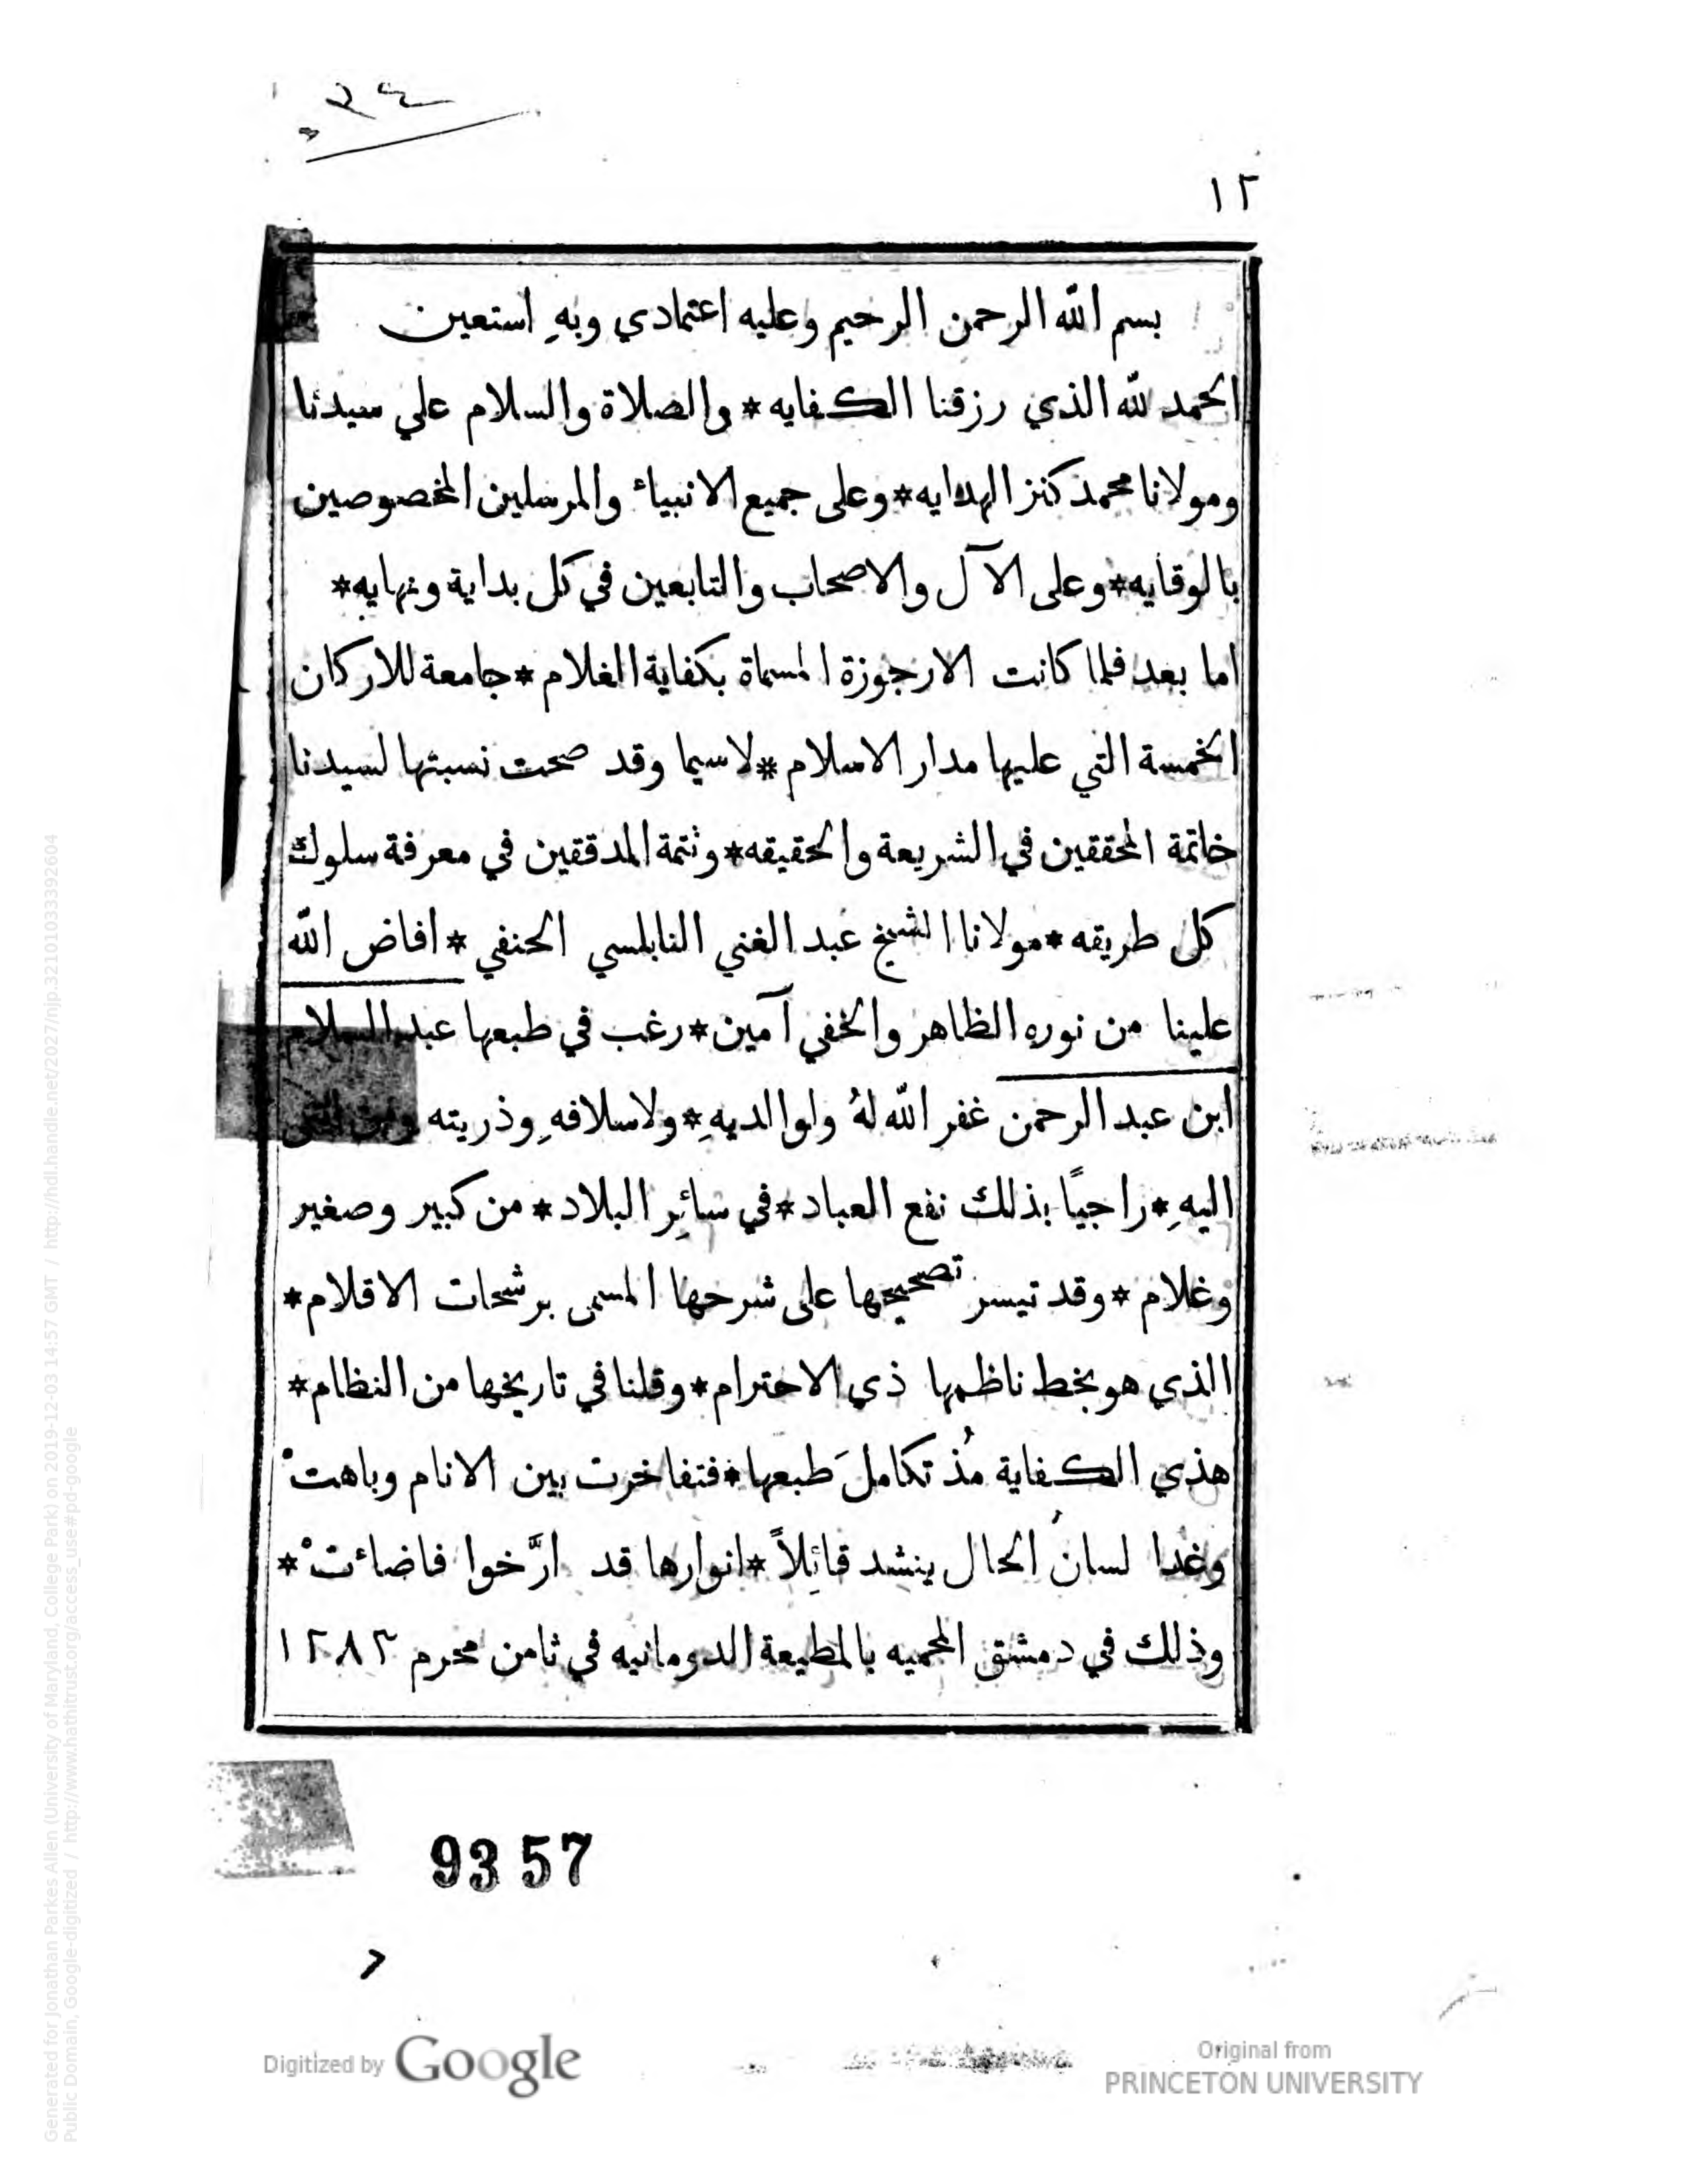 ٣٤
١٢
بسم الله الرحمن الرحيم وعليه اعتمادي وبهِ استعين
الحمد لله الذي رزقنا الكفايه * والصلاة والسلام علي سيدنا
ومولانا محمد كنز الهدايه * وعلى جميع الانبياء والمرسلين المخصوصين
بالوقايه * وعلى الآل والاصحاب والتابعين في كل بداية ونهايه *
اما بعد فلما كانت الارجوزة المسماة بكفاية الغلام * جامعة للاركان
الخمسة التي عليها مدار الاسلام * لاسيما وقد صحت نسبتها لسيدنا
خاتمة المحققين في الشريعة والحقيقه * وتتمة المدققين في معرفة سلوك
كل طريقه * مولانا الشيخ عبد الغني النابلسي الحنفي * افاض الله
علينا من نوره الظاهر والخفي آمين * رغب في طبعها عبد السلام
ابن عبد الرحمن غفر الله لهُ ولوالديهِ * ولاسلافهِ وذريته
اليهِ * راجيًا بذلك نفع العباد * في سائِر البلاد * من كبير وصغير
وغلام * وقد تيسر تصحيحها على شرحها المسمى برشحات الاقلام *
الذي هو بخط ناظمها ذي الاحترام * وقلنا في تاريخها من النظام *
هذي الكفاية مُذ تكاملَ طبعها * فتفاخرت بين الانام وباهتْ
وغدا لسانُ الحال ينشد قائِلاً * انوارها قد ارَّخوا فاضاءتْ *
وذلك في دمشق المحميه بالمطبعة الدومانيه في ثامن محرم ١٢٨٣
9357
Digitized by Google
Original from
PRINCETON UNIVERSITY
Generated for Jonathan Parkes Allen (University of Maryland, College Park) on 2019-12-03 14:57 GMT / http://hdl.handle.net/2027/njp.32101033392604
Public Domain, Google-digitized / http://www.hathitrust.org/access_use#pd-google